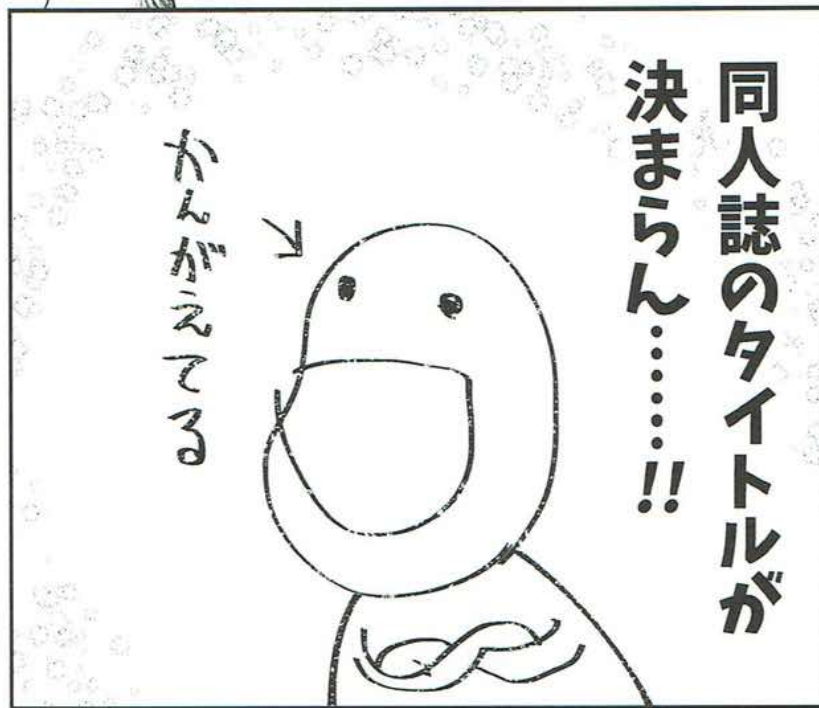 同人誌のタイトルが
決まらん………!!
かんがえてる